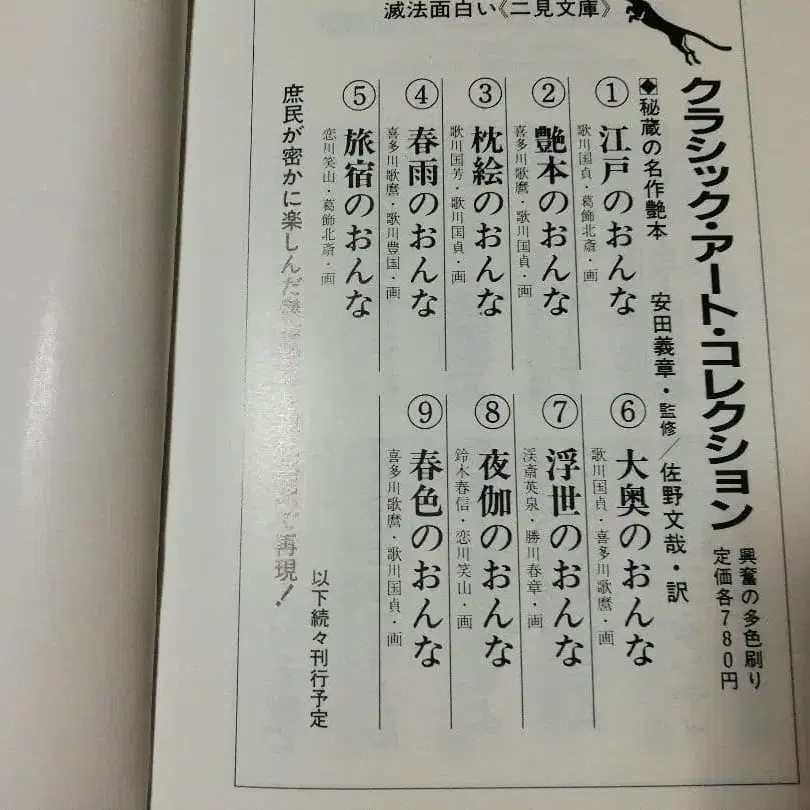 滅法面白い《二見文庫》
クラシック・アート・コレクション
興奮の多色刷り
定価各780円
◆秘蔵の名作艶本
安田義章・監修／佐野文哉・訳
①江戸のおんな
歌川国貞・葛飾北斎・画
②艶本のおんな
喜多川歌麿・歌川国貞・画
③枕絵のおんな
歌川国芳・歌川国貞・画
④春雨のおんな
喜多川歌麿・歌川豊国・画
⑤旅宿のおんな
恋川笑山・葛飾北斎・画
⑥大奥のおんな
歌川国貞・喜多川歌麿・画
⑦浮世のおんな
渓斎英泉・勝川春章・画
⑧夜伽のおんな
鈴木春信・恋川笑山・画
⑨春色のおんな
喜多川歌麿・歌川国貞・画
庶民が密かに楽しんだ
で再現！
以下続々刊行予定